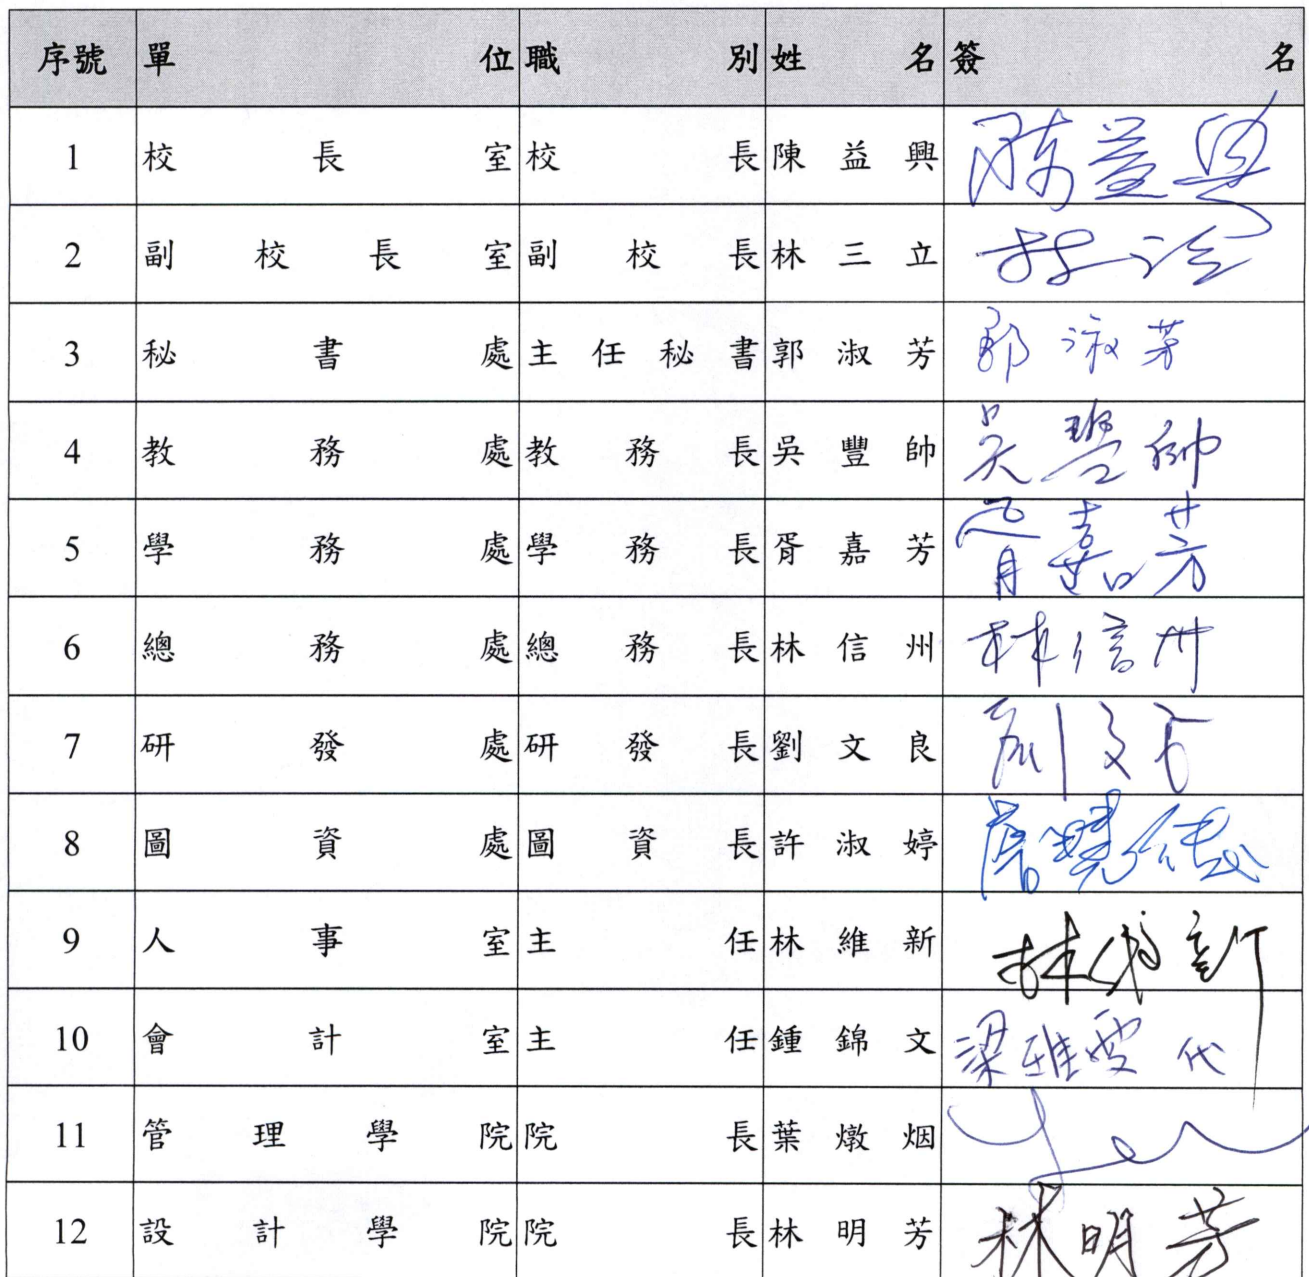 序號 單位 職別 姓名 簽名
1 校長室 校長 陳益興 陳益興
2 副校長室 副校長 林三立 林三立
3 秘書處 主任秘書 郭淑芳 郭淑芳
4 教務處 教務長 吳豐帥 吳豐帥
5 學務處 學務長 胥嘉芳 胥嘉芳
6 總務處 總務長 林信州 林信州
7 研發處 研發長 劉文良 劉文良
8 圖資處 圖資長 許淑婷
9 人事室 主任 林維新 林維新
10 會計室 主任 鍾錦文 梁雅雯 代
11 管理學院 院長 葉燉烟
12 設計學院 院長 林明芳 林明芳